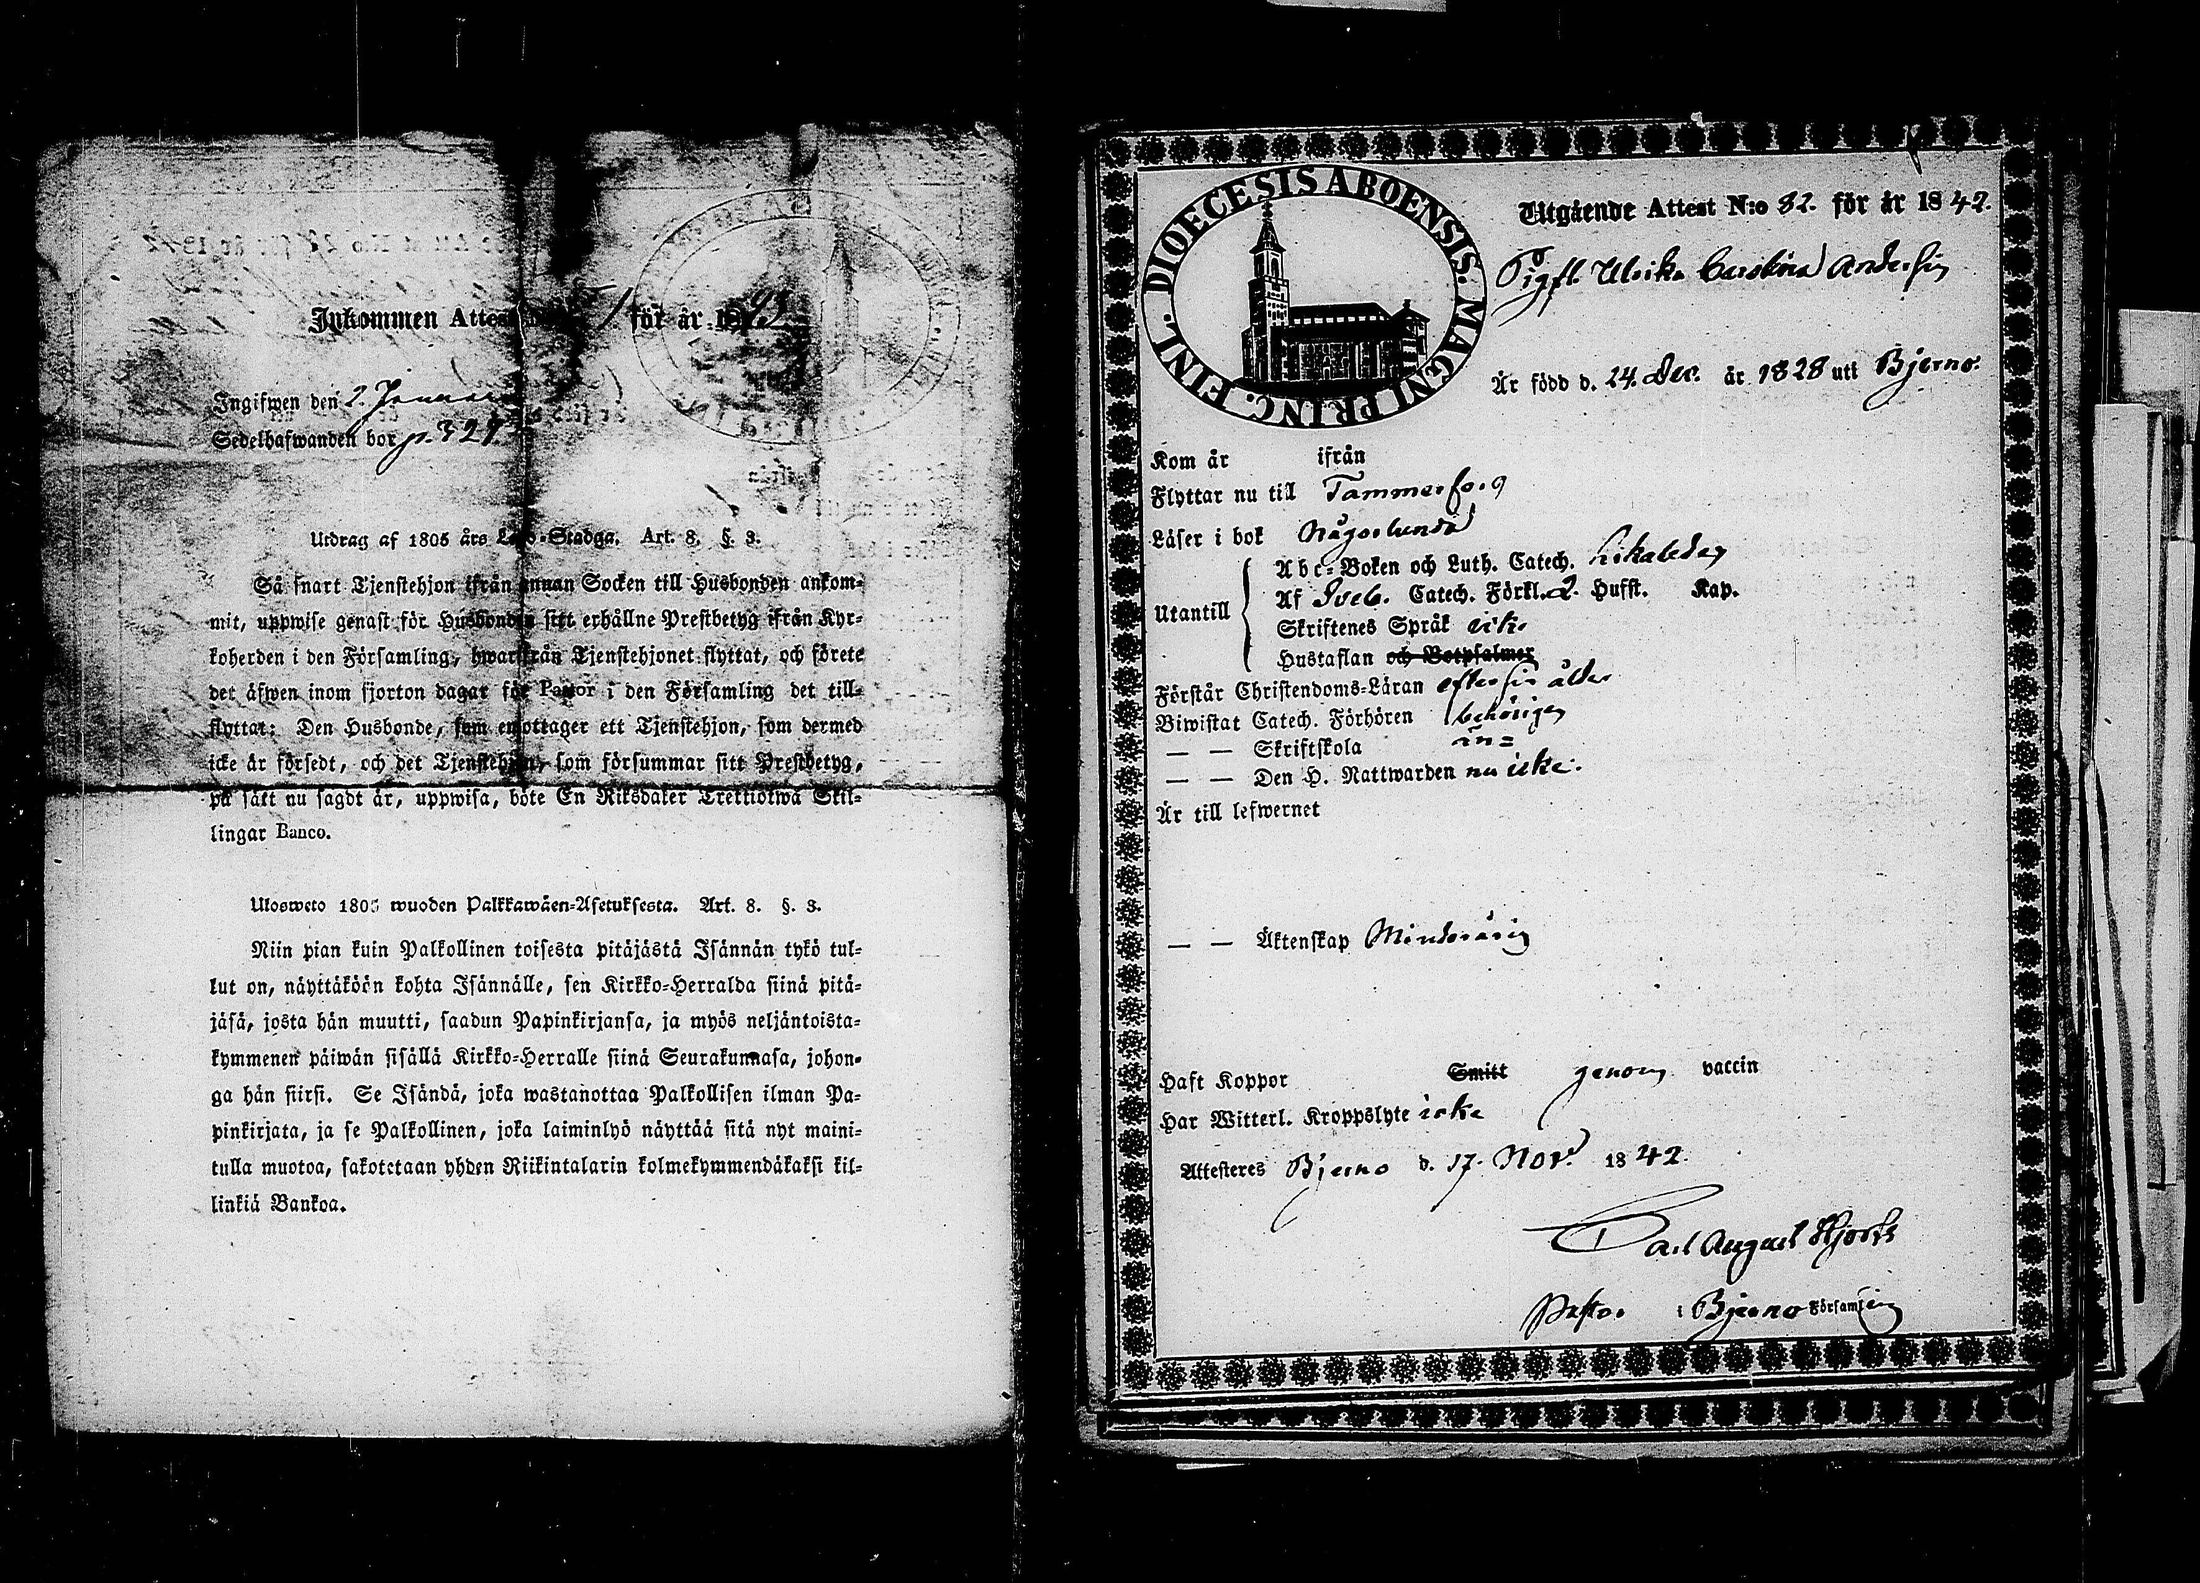 Inkommen Attest för år 1843
Ingifwen den 2. Januari
Sedelhafwanden bor p. 329.
Utdrag af 1805 års Lego-Stadga. Art. 8. §. 3.
Så snart Tjenstehjon ifrån annan Socken till Husbonden ankom-
mit, uppwise genast för Husbonden sitt erhållne Prestbetyg ifrån Kyr-
koherden i den Församling, hwarifrån Tjenstehjonet flyttat, och förete
det äfwen inom fjorton dagar för Pastor i den Församling det till-
flyttat: Den Husbonde, som emottager ett Tjenstehjon, som dermed
icke är försedt, och det Tjenstehjon, som försummar sitt Prestbetyg,
på sätt nu sagdt är, uppwisa, böte En Riksdaler Trettiotwå Skil-
lingar Banco.
Ulosweto 1805 wuoden Palkkawäen-Asetuksesta. Art. 8. §. 3.
Niin pian kuin Palkollinen toisesta pitäjästä Isännän tykö tul-
lut on, näyttäköön kohta Isännälle, sen Kirkko-Herralda siinä pitä-
jäsä, josta hän muutti, saadun Papinkirjansa, ja myös neljäntoista-
kymmenen päiwän sisällä Kirkko-Herralle siinä Seurakunnasa, johon-
ga hän siirsi. Se Isändä, joka wastanottaa Palkollisen ilman Pa-
pinkirjata, ja se Palkollinen, joka laiminlyö näyttää sitä nyt maini-
tulla muotoa, sakotetaan yhden Riikintalarin kolmekymmendäkaksi kil-
linkiä Bankoa.
DIOECESIS ABOENSIS. MAGNI PRINC. FINL.
Utgående Attest N:o 82. för år 1842.
Pigfl. Ulrika Carolina Andersin
Är född d. 24. Dec. år 1828 uti Bjerno.
Kom år ifrån
Flyttar nu till Tammerfors
Läser i bok någorlunda
Abc-Boken och Luth. Catech. likaledes
Utantill Af Sveb. Catech. Förkl. 2. Hufst. Kap.
Skriftenes Språk icke
Hustaflan och Botpsalmer
Förstår Christendoms-Läran efter sin ålder
Biwistat Catech. Förhören behörigen
— — Skriftskola än=
— — Den H. Nattwarden nu icke.
Är till lefwernet
— — Äktenskap Minderårig
Haft Koppor Smitt genom vaccin
Har Witterl. Kroppslyte icke
Attesteres Bjerno d. 17. Nov. 1842.
Carl August Hjorth
Pastor i Bjerno Församling